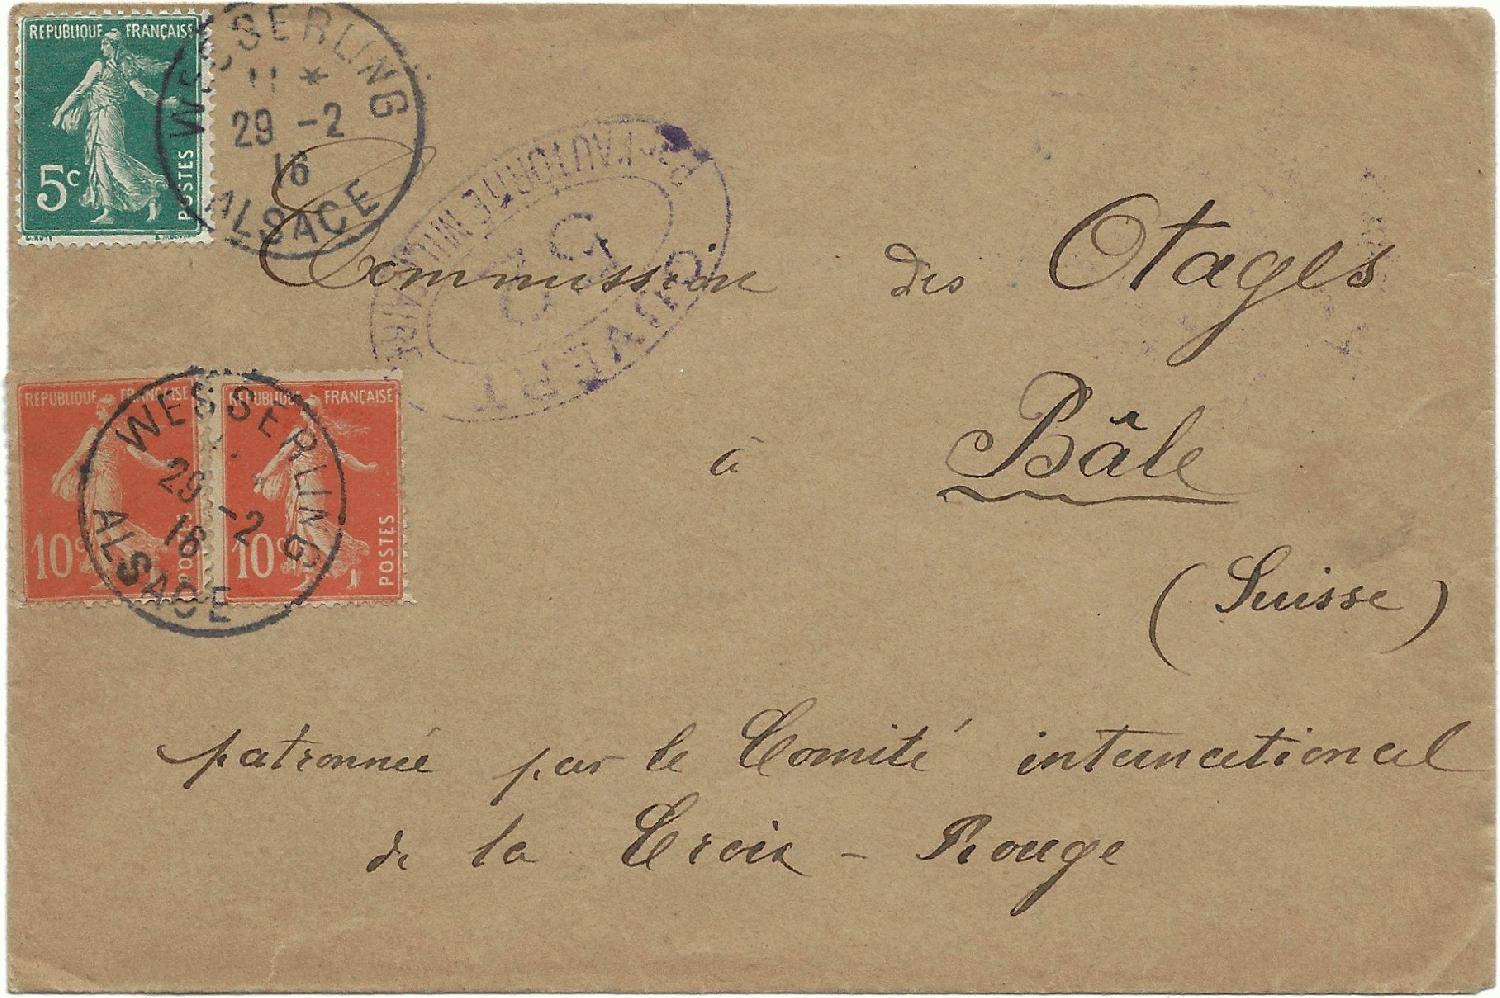 REPUBLIQUE FRANÇAISE
5c
POSTES
WESSERLING
11 *
29 -2
16
ALSACE
OUVERT
PAR L'AUTORITÉ MILITAIRE
52
Commission des Otages
à Bâle
(Suisse)
REPUBLIQUE FRANÇAISE
10c
POSTES
REPUBLIQUE FRANÇAISE
10c
POSTES
WESSERLING
29 -2
16
ALSACE
patronnée par le Comité international
de la Croix-Rouge